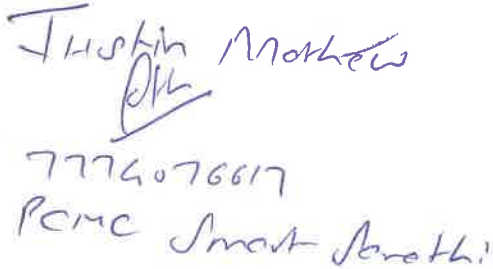 Justin Mathew
7774076617
PCMC Smart Sarathi